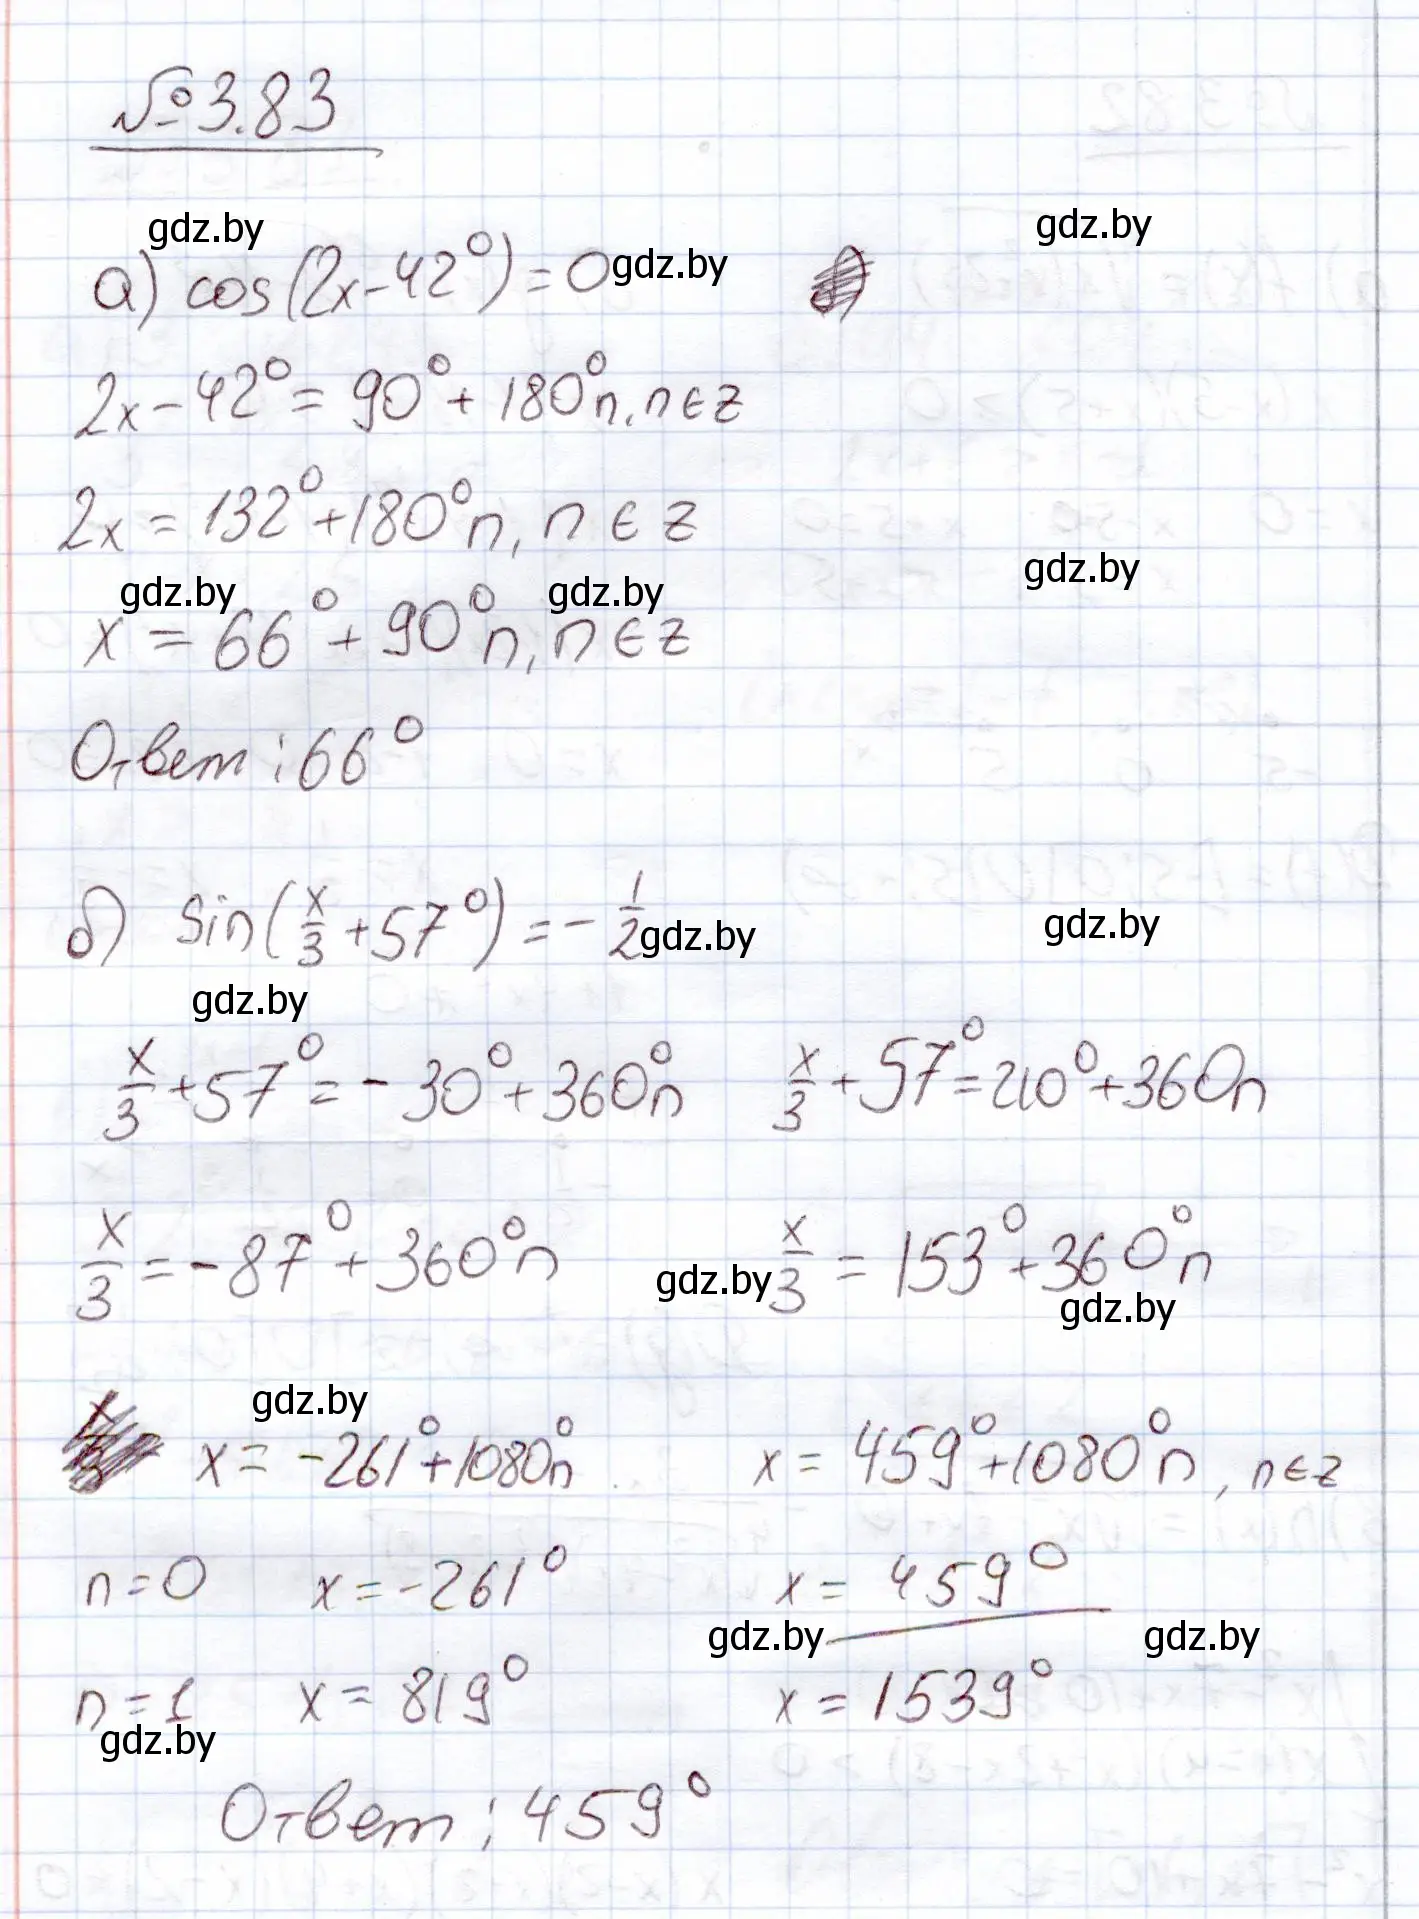 № 3.83
gdz.by gdz.by
а) cos(2x-42°)=0 gdz.by
2x-42°=90°+180°n, n∈z
2x=132°+180°n, n∈z
gdz.by gdz.by gdz.by
x=66°+90°n, n∈z
Ответ: 66°
б) sin(x/3+57°)=-1/2 gdz.by gdz.by
gdz.by
x/3+57°=-30°+360°n x/3+57°=210°+360n
x/3=-87°+360°n x/3=153°+360°n
gdz.by gdz.by
gdz.by
x=-261°+1080°n x=459°+1080°n, n∈z
n=0 x=-261° x=459°
gdz.by gdz.by
n=1 x=819° x=1539°
gdz.by
Ответ: 459°